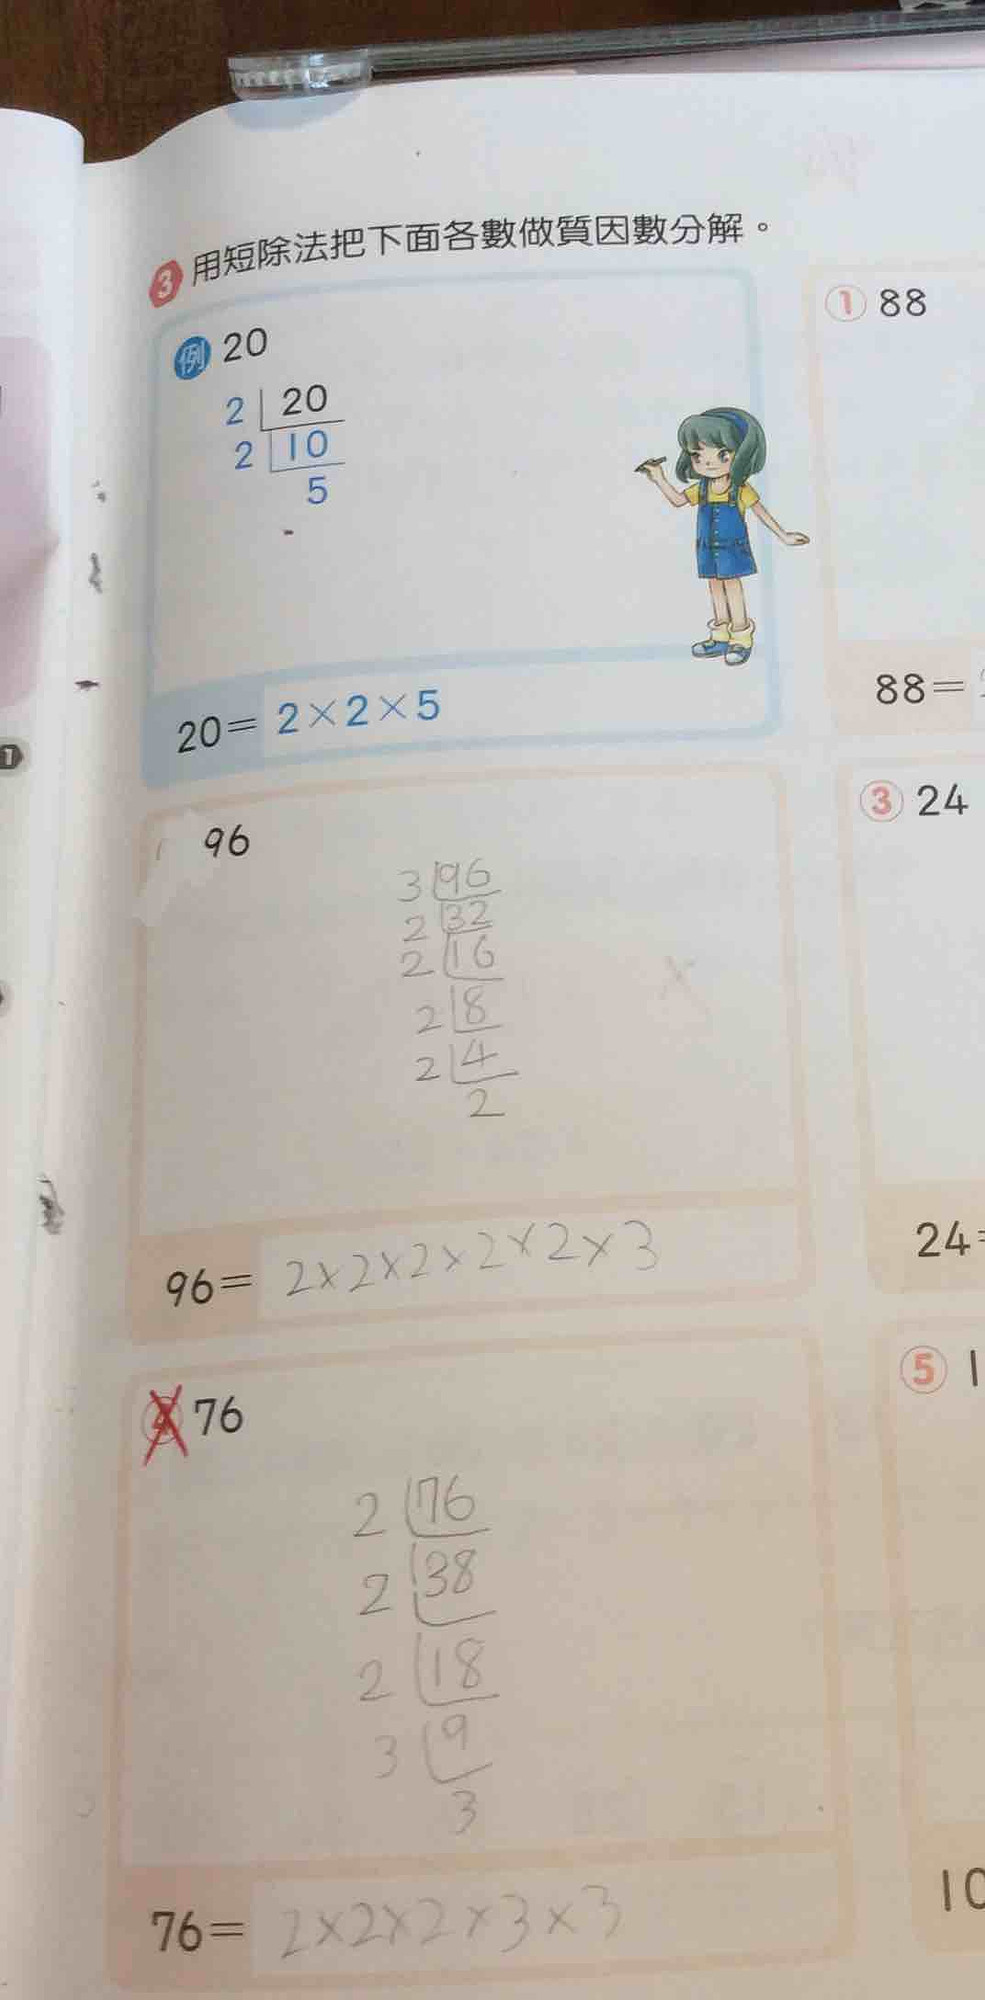 3 用短除法把下面各數做質因數分解。
例 20
2 20
2 10
5
20= 2×2×5
① 88
88=
96
3 96
2 32
2 16
2 8
2 4
2
96= 2×2×2×2×2×3
③ 24
24=
76
2 76
2 38
2 18
3 9
3
76= 2×2×2×3×3
⑤ 1
10